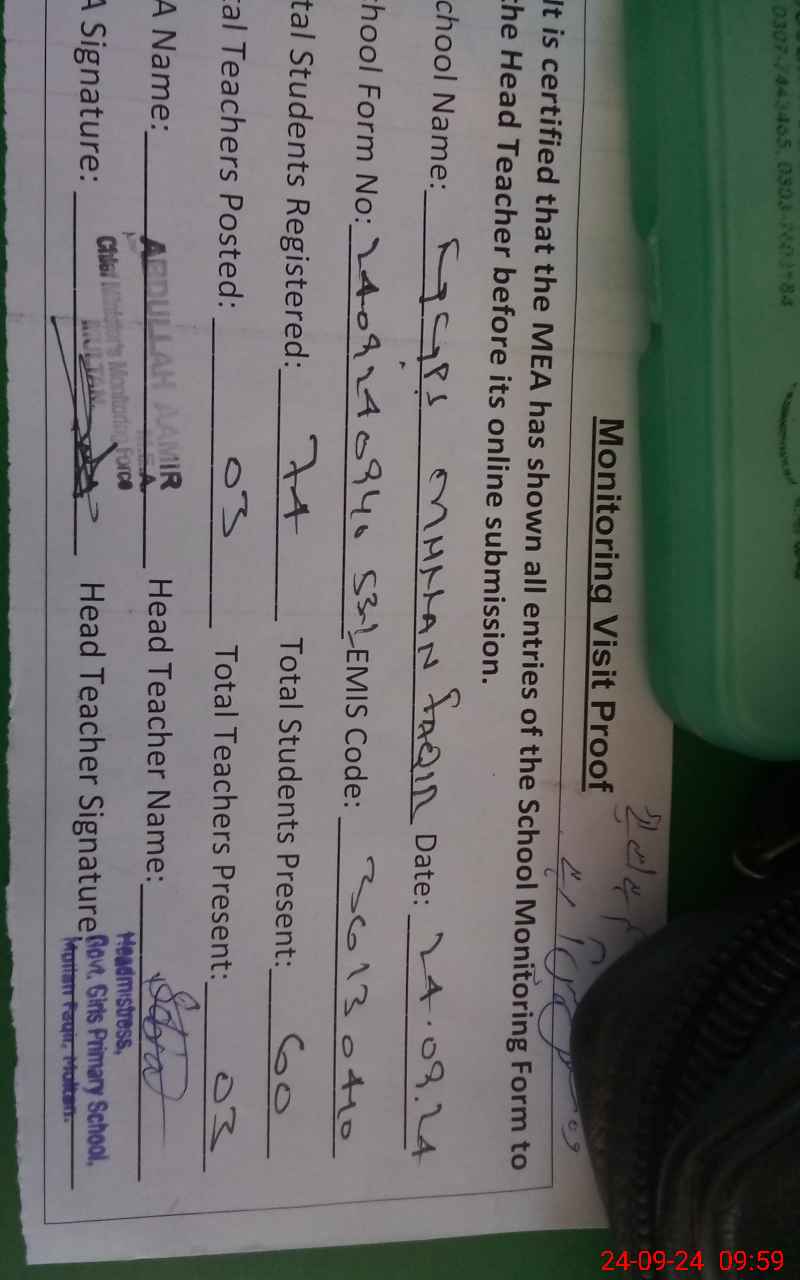 Monitoring Visit Proof
It is certified that the MEA has shown all entries of the School Monitoring Form to
the Head Teacher before its online submission.
chool Name: GGPS Date: 24.09.24
hool Form No: EMIS Code: 36130440
tal Students Registered: 74 Total Students Present: 60
cal Teachers Posted: 03 Total Teachers Present: 03
A Name: ABDULLAH AAMIR Head Teacher Name:
M.E.A
A Signature: Head Teacher Signature
Chief Minister's Monitoring Force
MULTAN
Headmistress,
Govt. Girls Primary School,
Multan Faqir, Multan.
24-09-24 09:59